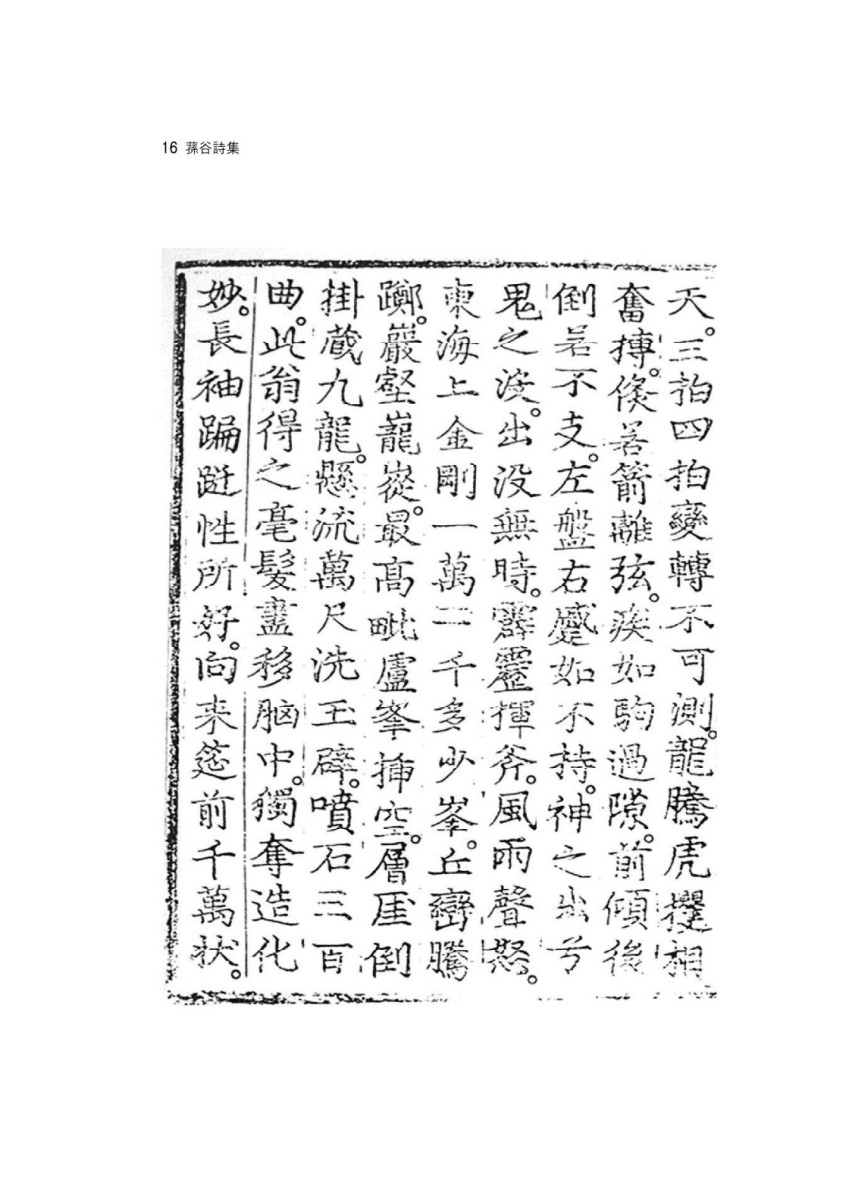 16 蓀谷詩集
天。三拍四拍變轉不可測。龍騰虎攫相
奮搏。倐若箭離弦。疾如駒過隙。前傾後
倒若不支。左盤右蹙如不持。神之出兮
鬼之沒。出没無時。霹靂揮斧。風雨聲怒。
東海上金剛一萬二千多少峯。丘巒騰
躑。巖壑巃嵸。最高毗盧峯揷空。層厓倒
掛藏九龍。懸流萬尺洗玉礕。噴石三百
曲。此翁得之毫髮盡移腦中。獨奪造化
妙。長袖蹁躚性所好。向来筵前千萬状。